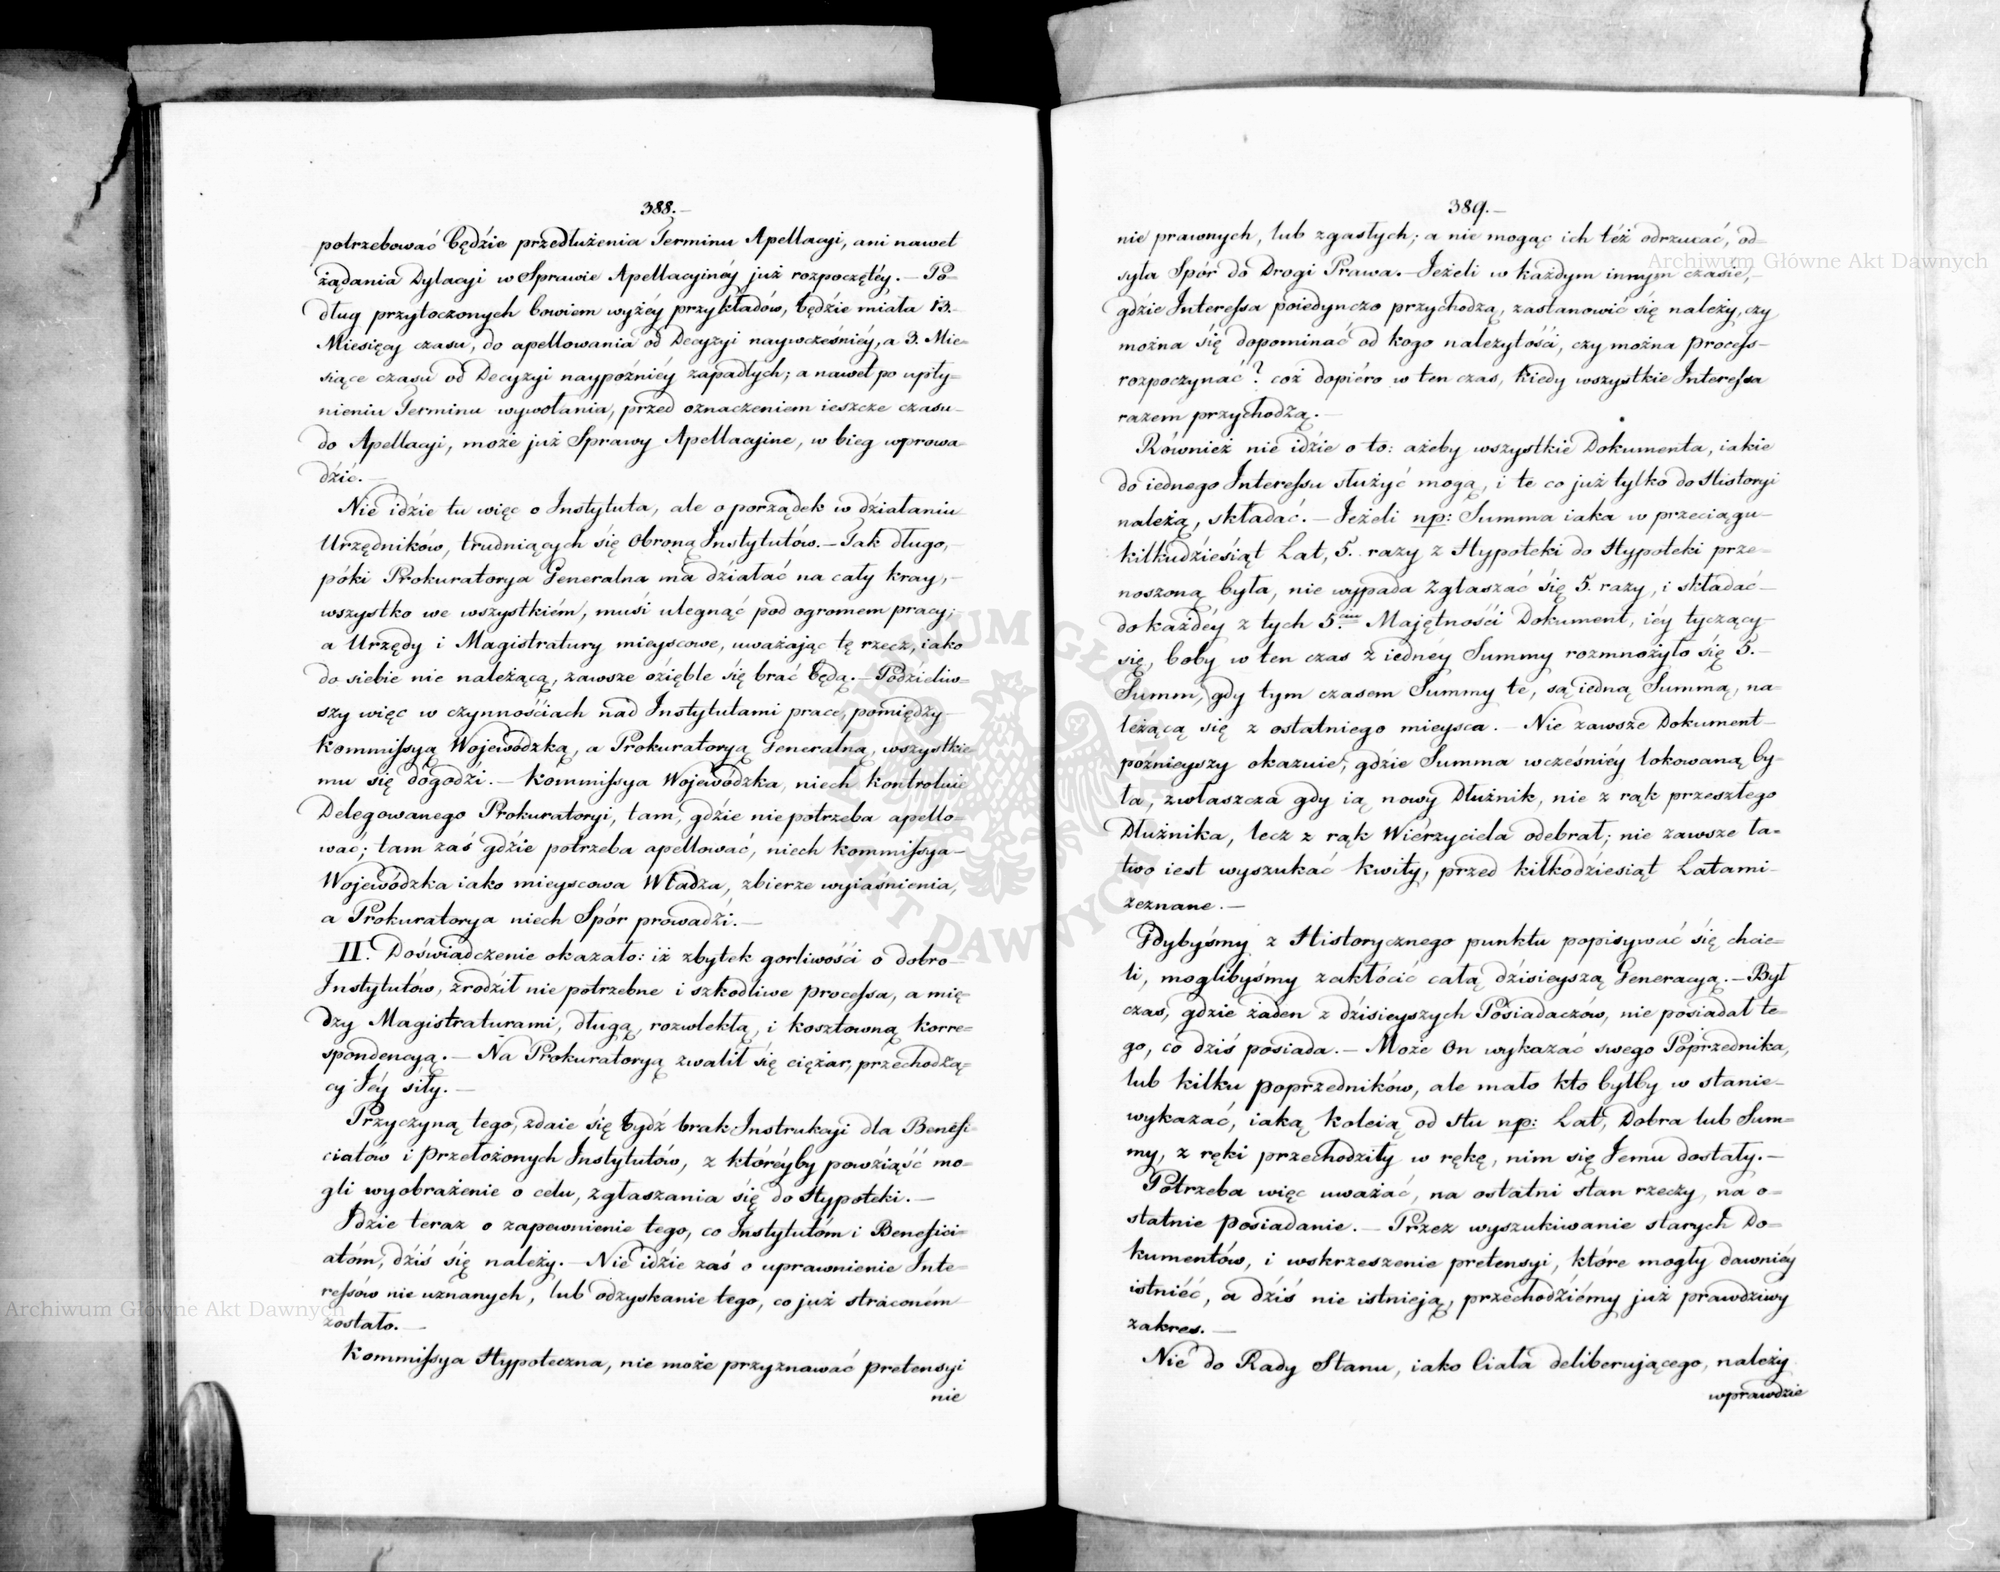 388.—
potrzebować będzie przedłużenia Terminu Apellacyi, ani nawet
żądania Dylacyi w Sprawie Apellacyinéy już rozpoczętéy.— Po=
dług przytoczonych bowiem wyżéy przykładów, będzie miała 13.
Miesięcy czasu, do apellowania od Decyzyi naywcześniéy, a 3. Mie=
siące czasu od Decyzyi naypoźniéy zapadłych; a nawet po upły=
nieniu Terminu wywołania, przed oznaczeniem ieszcze czasu
do Apellacyi, może już Sprawy Apellacyine, w bieg wprowa=
dzić.—
Nie idzie tu więc o Instytuta, ale o porządek w działaniu
Urzędników, trudniących się Obroną Instytutów.— Tak długo,—
póki Prokuratorya Generalna ma działać na cały kray,—
wszystko we wszystkiém, musi ulegnąć pod ogromem pracy;
a Urzędy i Magistratury mieyscowe, uważając tę rzecz, iako
do siebie nie należącą, zawsze oziębłe się brać będą.— Podzieliw=
szy więc w czynnościach nad Instytutami prace, pomiędzy
Kommissyą Wojewódzką, a Prokuratoryą Generalną, wszystkie
mu się dogodzi.— Kommissya Wojewódzka, niech kontroluie
Delegowanego Prokuratoryi, tam, gdzie nie potrzeba apello=
wać; tam zaś gdzie potrzeba apellować, niech Kommissya
Wojewódzka iako mieyscowa Władza, zbierze wyiaśnienia,
a Prokuratorya niech Spór prowadzi.—
II. Doświadczenie okazało: iż zbytek gorliwości o dobro
Instytutów, zrodził nie potrzebne i szkodliwe processa, a mię=
dzy Magistraturami, długą, rozwlekłą, i kosztowną korre=
spondencyą.— Na Prokuratoryą zwalił się ciężar, przechodzą=
cy Jéy siły.—
Przyczyną tego, zdaie się bydź brak Instrukcyi dla Benefi=
ciatów i Przełożonych Instytutów, z któréyby powziąść mo=
gli wyobrażenie o celu, zgłaszania się do Hypoteki.—
Idzie teraz o zapewnienie tego, co Instytutóm i Benefici=
atóm, dziś się należy.— Nie idzie zaś o uprawnienie Inte=
ressów nie uznanych, lub odzyskanie tego, co już straconém
zostało.—
Kommissya Hypoteczna, nie może przyznawać pretensyi
nie
389.—
nie prawnych, lub zgasłych; a nie mogąc ich téż odrzucać, od=
syła Spór do Drogi Prawa.— Jeżeli w każdym innym czasie,—
gdzie Interessa poiedynczo przychodzą, zastanowić się należy, czy
można się dopominać od kogo należytości, czy można process
rozpoczynać? coż dopiéro w ten czas, kiedy wszystkie Interessa
razem przychodzą.—
Również nie idzie o to: ażeby wszystkie Dokumenta, iakie
do iednego Interessu służyć mogą, i te co już tylko do Historyi
należą, składać.— Jeżeli np: Summa iaka w przeciągu
kilkudziesiąt Lat, 5. razy z Hypoteki do Hypoteki prze=
noszoną była, nie wypada Zgłaszać się 5. razy, i składać
do każdéy z tych 5.ciu Majętności Dokument, iéy tyczący
się, boby w ten czas z iednéy Summy rozmnożyło się 5.—
Summ, gdy tym czasem Summy te, są iedną Summą, na=
leżącą się z ostatniego mieysca.— Nie zawsze Dokument
późnieyszy okazuie, gdzie Summa wcześniéy lokowaną by=
ła, zwłaszcza gdy ią nowy Dłużnik, nie z rąk przeszłego
Dłużnika, lecz z rąk Wierzyciela odebrał; nie zawsze ła=
two iest wyszukać kwity, przed kilkodziesiąt Latami
zeznane.—
Gdybyśmy z Historycznego punktu popisywać się chcie=
li, moglibyśmy zakłócić całą dzisieyszą Generacyą.— Był
czas, gdzie żaden z dzisieyszych Posiadaczów, nie posiadał te=
go, co dziś posiada.— Może On wykazać swego Poprzednika,
lub kilku poprzedników, ale mało kto byłby w stanie
wykazać, iaką koleią od stu np: Lat, Dobra lub Sum=
my, z ręki przechodziły w rękę, nim się Jemu dostały.—
Potrzeba więc uważać, na ostatni stan rzeczy, na o=
statnie posiadanie.— Przez wyszukiwanie starych Do=
kumentów, i wskrzeszenie pretensyi, które mogły dawniéy
istniéć, a dziś nie istnieją, przechodziémy już prawdziwy
zakres.—
Nie do Rady Stanu, iako Ciała deliberującego, należy
wprawdzie
Archiwum Główne Akt Dawnych
Archiwum Główne Akt Dawnych
ARCHIWUM GŁÓWNE AKT DAWNYCH